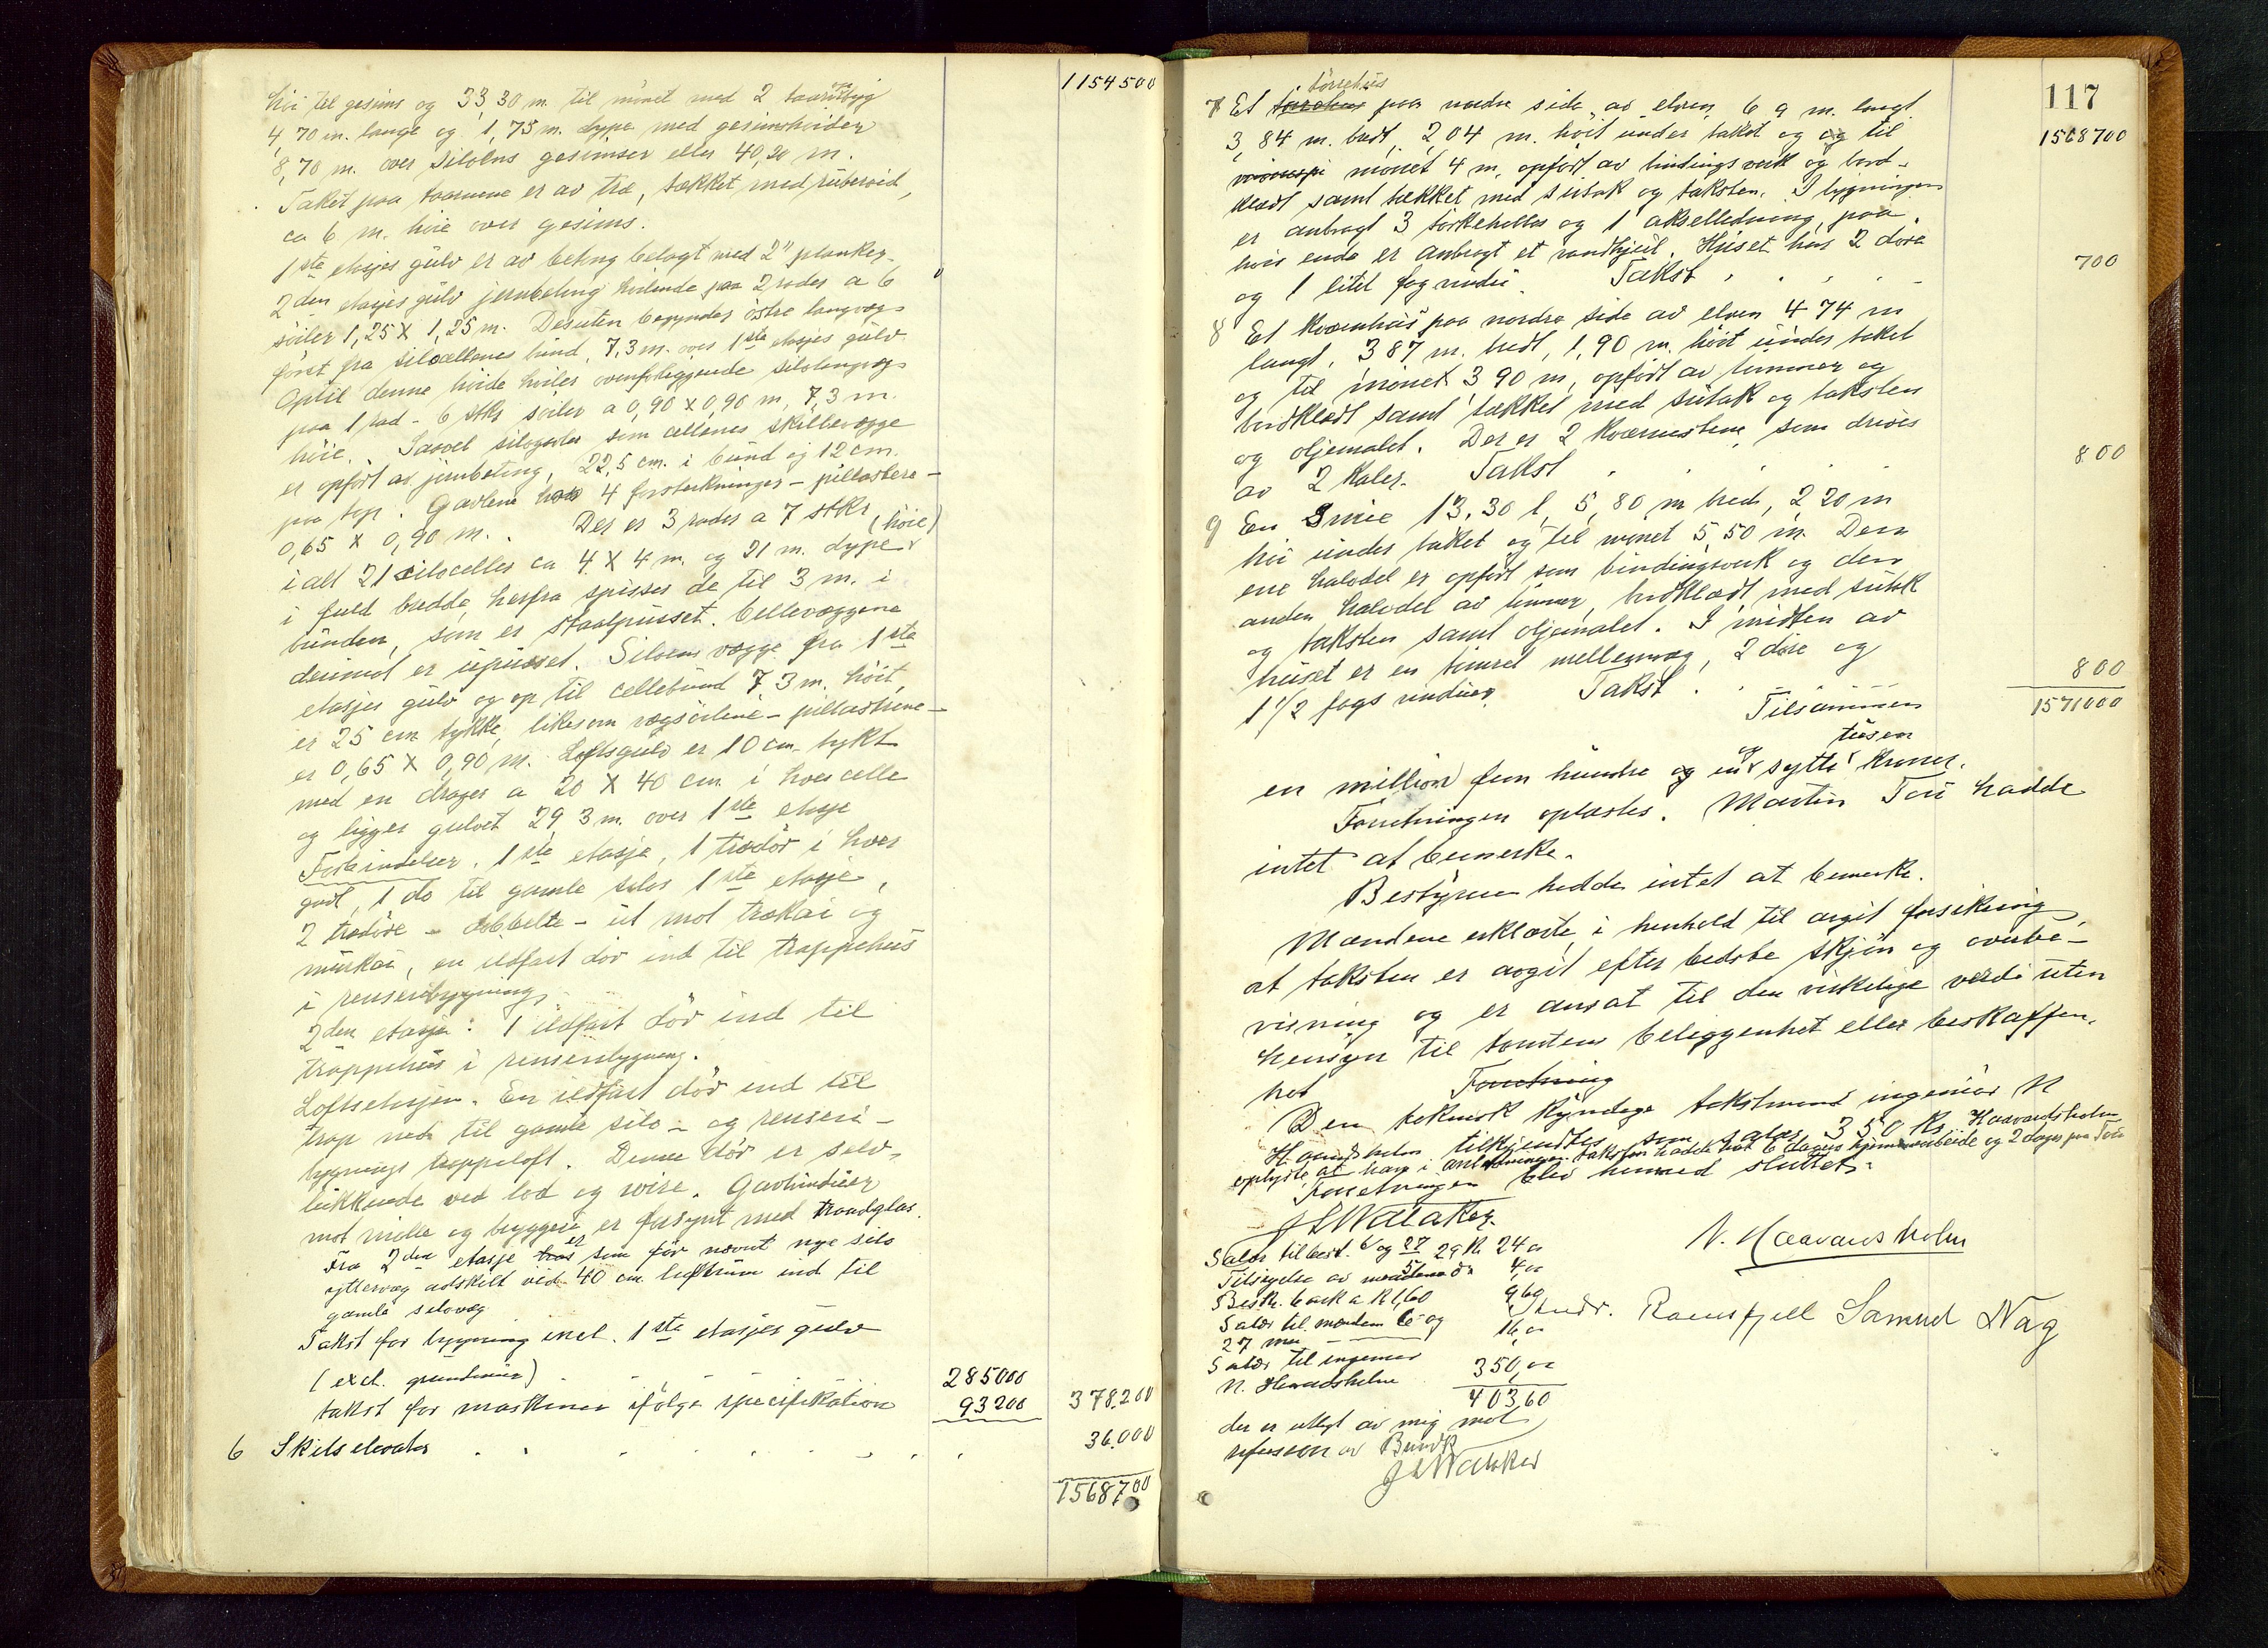 1154500
høi til gesims og 33,30 m. til mønet med 2 taarnbyg
4,70 m. lange og 1,75 m. dype med gesimshøider
8,70 m. over siloens gesimser eller 40,20 m.
Taket paa taarnene er av træ, tækket med ruberoid,
ca 6 m. høie over gesims.
1ste etasjes gulv er av betong belagt med 2" planker.
2den etasjes gulv jernbetong hvilende paa 2 rader a 6
søiler 1,25 X 1,25 m. Desuten begynder østre langvæg
først fra silocellenes bund, 7,3 m. over 1ste etasjes gulv.
Optil denne høide hviler ovenforliggende silolangvæg
paa 1 rad - 6 stks søiler a 0,90 x 0,90 m, 7,3 m.
høie. Saavel silogavler som cellenes skillevægge
er opført av jernbetong, 22,5 cm. i bund og 12 cm.
paa top. Gavlene har 4 forsterkninger - pillastere -
0,65 X 0,90 m. Der er 3 rader a 7 stks
ialt 21 siloceller ca 4 X 4 m. og 21 m. dype (høie)
i fuld bredde, herfra spisses de til 3 m. i
bunden, som er staalpusset. Cellevæggene
derimot er upusset. Siloens vægge fra 1ste
etasjes gulv og op til cellebund 7,3 m. høit,
er 25 cm tykke, likesom vægsøilene - pillastrene -
er 0,65 X 0,90 m. Loftsgulv er 10 cm. tykt
med en drager a 20 X 40 cm. i hver celle
og ligger gulvet 29,3 m. over 1ste etasje
Forbindelser. 1ste etasje, 1 trædør i hver
gavl, 1 do til gamle silos 1ste etasje,
2 trædøre - dobbelte - ut mot trækai og
murkai, en ildfast dør ind til trappehus
i renseribygning.
2den etasje: 1 ildfast dør ind til
trappehus i renseribygning.
Loftsetasjen. En ildfast dør ind til
trap ned til gamle silo - og renseri-
bygnings trappeloft. Denne dør er selv-
lukkende ved lod og wire. Gavlvinduer
mot mølle og bryggeri er forsynt med traadglas.
Fra 2den etasje er som før nævnt nye silo
yttervæg adskilt ved 40 cm. luftrum ind til
gamle silovæg
Takst for bygning incl. 1ste etasjes gulv
(excl. grundmur) 285000
takst for maskiner ifølge specifikation 93200 378.200
6 Skibselevator 36.000
1568700
117
1568700
tørrehus
7 Et paa nordre side av elven, 6 9 m. langt
3,84 m. bredt, 2 04 m. høit under taket og til
mønet 4 m, opført av bindingsverk og bord-
klædt samt tækket med sutak og taksten. I bygningen
er anbragt 3 tørkeheller og 1 akselledning, paa
hvis ende er anbragt et vandhjul. Huset har 2 døre
og 1 litet fag vindu. Takst 700
8 Et kvernhus paa nordre side av elven 4 74 m
langt, 3 87 m. bredt, 1,90 m. høit under taket
og til mønet 3 90 m, opført av tømmer og
bordklædt samt tækket med sutak og taksten
og oljemalet. Der er 2 kvernstene, som drives
av 2 kaler. Takst 800
9 En Smie 13.30 l, 5,80 m bred, 2 20 m
høi under taket og til mønet 5,50 m. Den
ene halvdel er opført som bindingsverk og den
anden halvdel av tømmer, bordklædt med sutak
og taksten samt oljemalet. I midten av
huset er en tømret mellemvæg, 2 døre og
1 1/2 fags vinduer. Takst 800
Tilsammen 1571000
tusen
en million fem hundre og en og sytti kroner.
Forretningen oplæstes. Martin Tou hadde
intet at bemerke.
Bestyreren hadde intet at bemerke.
Mændene erklærte i henhold til avgit forsikring
at taksten er avgit efter bedste skjøn og overbe-
visning og er ansat til den virkelige verdi uten
hensyn til tomtens beliggenhet eller beskaffen.
het Forretning
Den teknisk kyndige takstmand ingeniør N
Haavardsholm tilkjendtes som salær 350 kr. Haavardsholm
oplyste, at han i anledningen taksten hadde hat 6 dagers hjemmearbeide og 2 dager paa Tou
Forretningen blev hermed sluttet.
J L Wataker.
N. Haavardsholm
Salær til best. 6 og 27 29 Kr 24 00
Tilsigelse av mændene 4,00
Beskr. 6 ark a kr 1,60 9 60
Salær til mændene 6 og
27 mai 16,00
Andr. Ramsfjell Samuel Nag
Salær til ingeniør
N. Haavardsholm 350,00
403,60
der er utlagt av mig mot
refusion av Brandk
J L Wataker